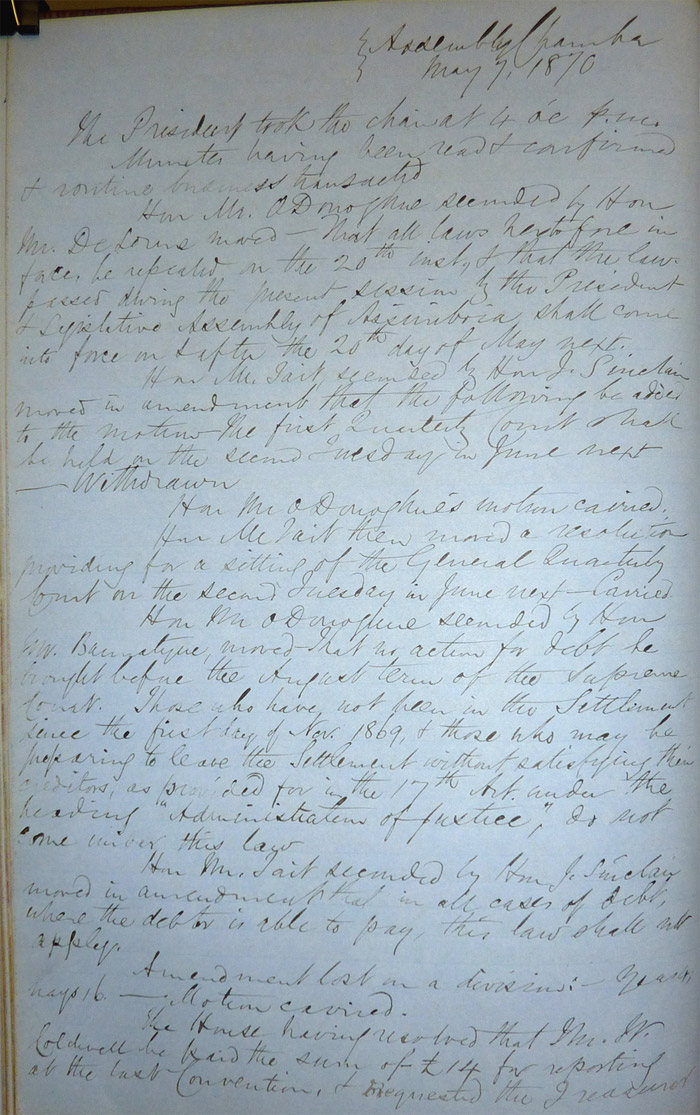 Assembly Chamber
May 7, 1870
The President took the chair at 4 oc p.m.
Minutes having been read & confirmed
& routine business transacted
Hon Mr. O'Donoghue seconded by Hon
Mr. DeLorme moved — That all laws heretofore in
force, be repealed, on the 20th inst, & that the laws
passed during the present session by the President
& Legislative Assembly of Assiniboia, shall come
into force on & after the 20th day of May next.
Hon Mr. Tait, seconded by Hon J. Sinclair
moved in amendment that the following be added
to the motion The first Quarterly Court shall
be held on the second Tuesday in June next
— Withdrawn
Hon Mr O'Donoghue's motion carried.
Hon Mr Tait then moved a resolution
providing for a sitting of the General Quarterly
Court on the second Tuesday in June next — Carried
Hon Mr O'Donoghue seconded by Hon
Mr. Bannatyne, moved That no action for debt be
brought before the August term of the Supreme
Court. Those who have not been in the Settlement
since the first day of Nov. 1869, & those who may be
preparing to leave the Settlement without satisfying their
creditors, as provided for in the 17th Art. under the
heading "Administration of Justice", do not
come under this law
Hon Mr. Tait seconded by Hon J. Sinclair
moved in amendment that in all cases of debt,
where the debtor is able to pay, this law shall not
apply.
Amendment lost on a division: — Yeas 4,
nays 16. — Motion carried.
The House having resolved that Mr. W.
Coldwell be paid the sum of £14 for reporting
at the last Convention, & requested the Treasurer